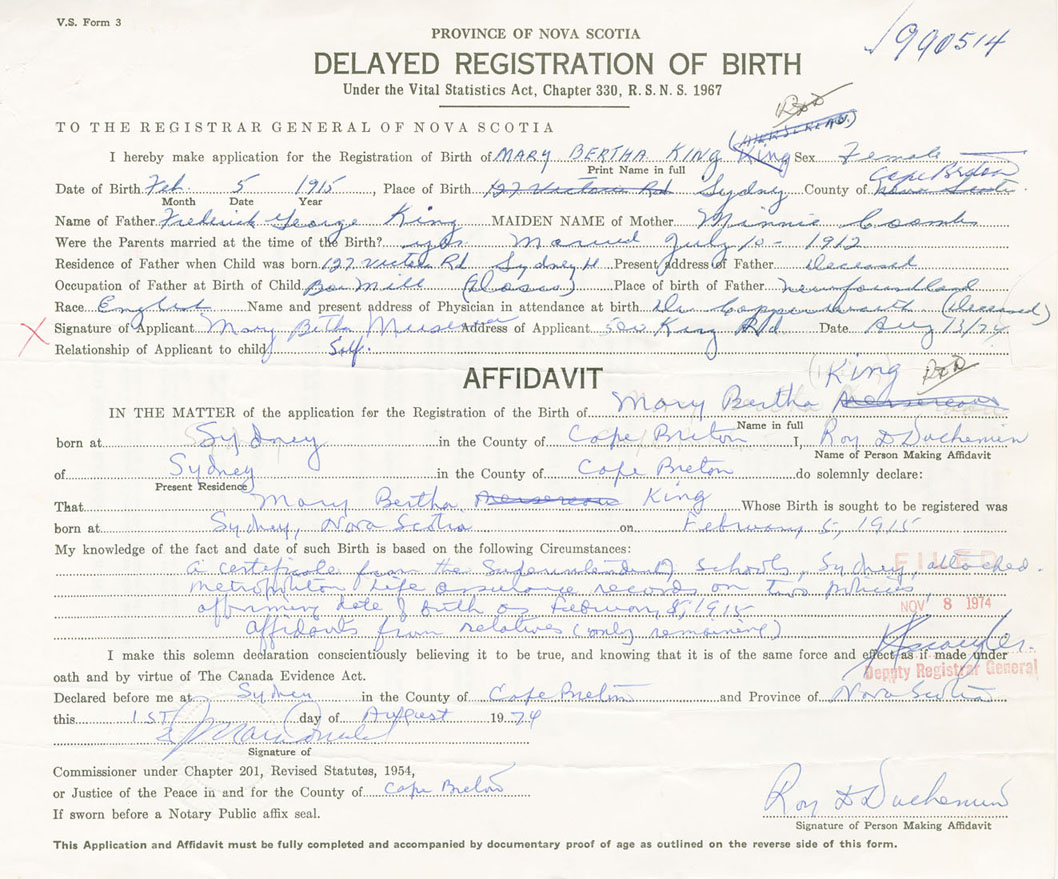 V.S. Form 3
990514
PROVINCE OF NOVA SCOTIA
DELAYED REGISTRATION OF BIRTH
Under the Vital Statistics Act, Chapter 330, R. S. N. S. 1967
TO THE REGISTRAR GENERAL OF NOVA SCOTIA
I hereby make application for the Registration of Birth of MARY BERTHA KING King Sex Female
Print Name in full
Cape Breton
Date of Birth Feb. 5 1915, Place of Birth 127 Victoria Rd Sydney County of Nova Scotia
Month Date Year
Name of Father Frederick George King MAIDEN NAME of Mother Minnie Coombs
Were the Parents married at the time of the Birth? yes Married July 10 - 1912
Residence of Father when Child was born 127 Victoria Rd Sydney Present address of Father Deceased
Occupation of Father at Birth of Child Bar Mill (Dosco) Place of birth of Father Newfoundland
Race English Name and present address of Physician in attendance at birth Dr (Deceased)
X Signature of Applicant Mary Bertha Address of Applicant King Rd Date Aug 13/74
Relationship of Applicant to child Self.
AFFIDAVIT
King
IN THE MATTER of the application for the Registration of the Birth of Mary Bertha
Name in full
born at Sydney in the County of Cape Breton I, Roy D Duchemin
Name of Person Making Affidavit
of Sydney in the County of Cape Breton do solemnly declare:
Present Residence
That Mary Bertha King Whose Birth is sought to be registered was
born at Sydney, Nova Scotia on February 5, 1915
My knowledge of the fact and date of such Birth is based on the following Circumstances:
a certificate from the Superintendent of Schools, Sydney, attached.
Metropolitan Life assurance records on two policies
affirming date of birth as February 5, 1915
affidavits from relatives (only remaining)
FILED
NOV 8 1974
Deputy Registrar General
I make this solemn declaration conscientiously believing it to be true, and knowing that it is of the same force and effect as if made under
oath and by virtue of The Canada Evidence Act.
Declared before me at Sydney in the County of Cape Breton and Province of Nova Scotia
this 1ST day of August 1974
Signature of
Commissioner under Chapter 201, Revised Statutes, 1954,
or Justice of the Peace in and for the County of Cape Breton
If sworn before a Notary Public affix seal.
Roy D Duchemin
Signature of Person Making Affidavit
This Application and Affidavit must be fully completed and accompanied by documentary proof of age as outlined on the reverse side of this form.